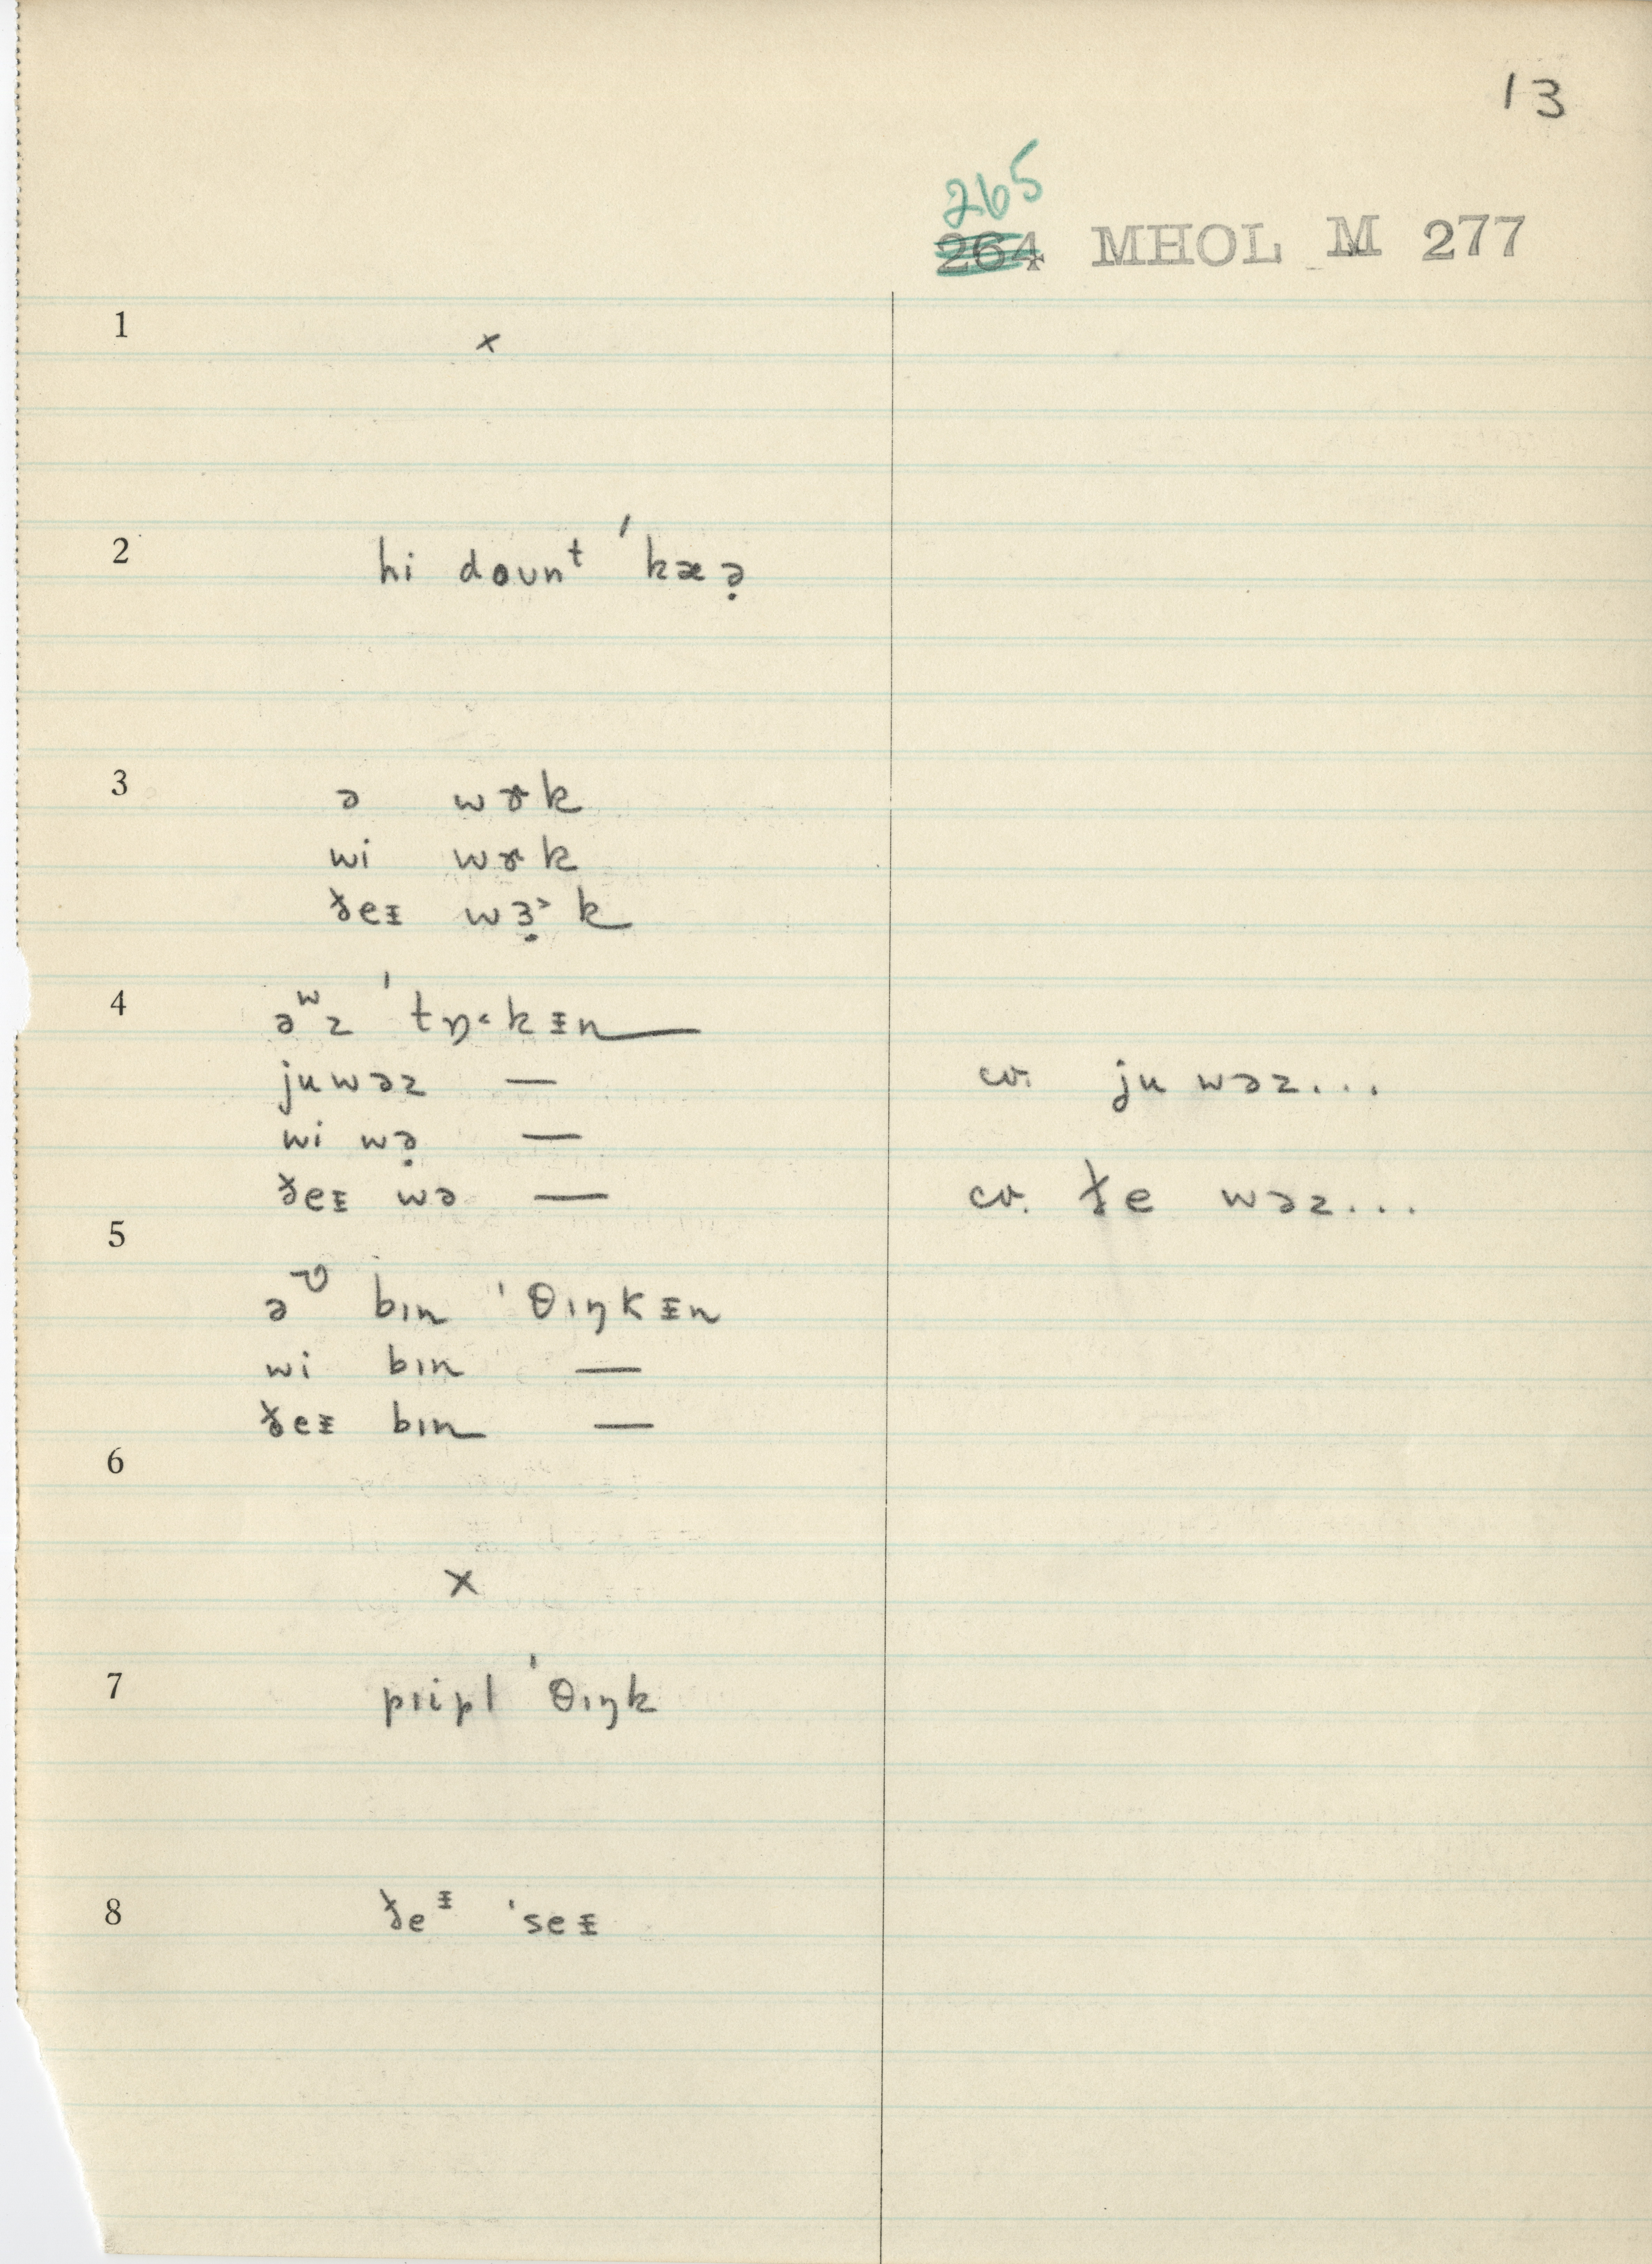 13
265
264 MHOL M 277
1 ×
2 hi doʊnᵗ ˈkæə̣
3 ə wɤk
wi wɤk
ðeᵻ wɜ̣˃k
4 əʷz ˈtɒ˂kᵻn
ju wəz —
wi wə̣ —
ðeᵻ wə —
cv. ju wəz...
cv. ðe wəz...
5 ə bɪn ˈθɪŋkᵻn
wi bɪn —
ðeᵻ bɪn —
6 ×
7 pɪipl ˈθɪŋk
8 ðeᵻ ˈseᵻ